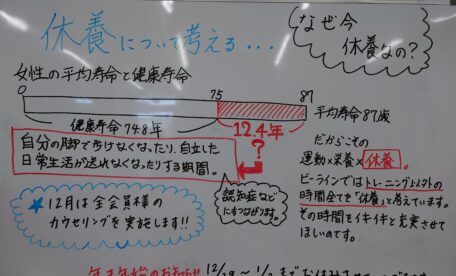 休養について考える...
なぜ今
休養なの?
女性の平均寿命と健康寿命
0
75
87
健康寿命74.8年
12.4年
平均寿命87歳
?
自分の脚で歩けなくなったり、自立した
日常生活が送れなくなったりする期間。
認知症などに
にもつながります。
だからこそ
運動×栄養×休養。
ビーラインではトレーニング以外の
時間全てを「休養」と考えています。
その時間をイキイキと充実させて
ほしいのです。
★12月は全会員様の
カウセリングを実施します!!
年末年始のお知らせ